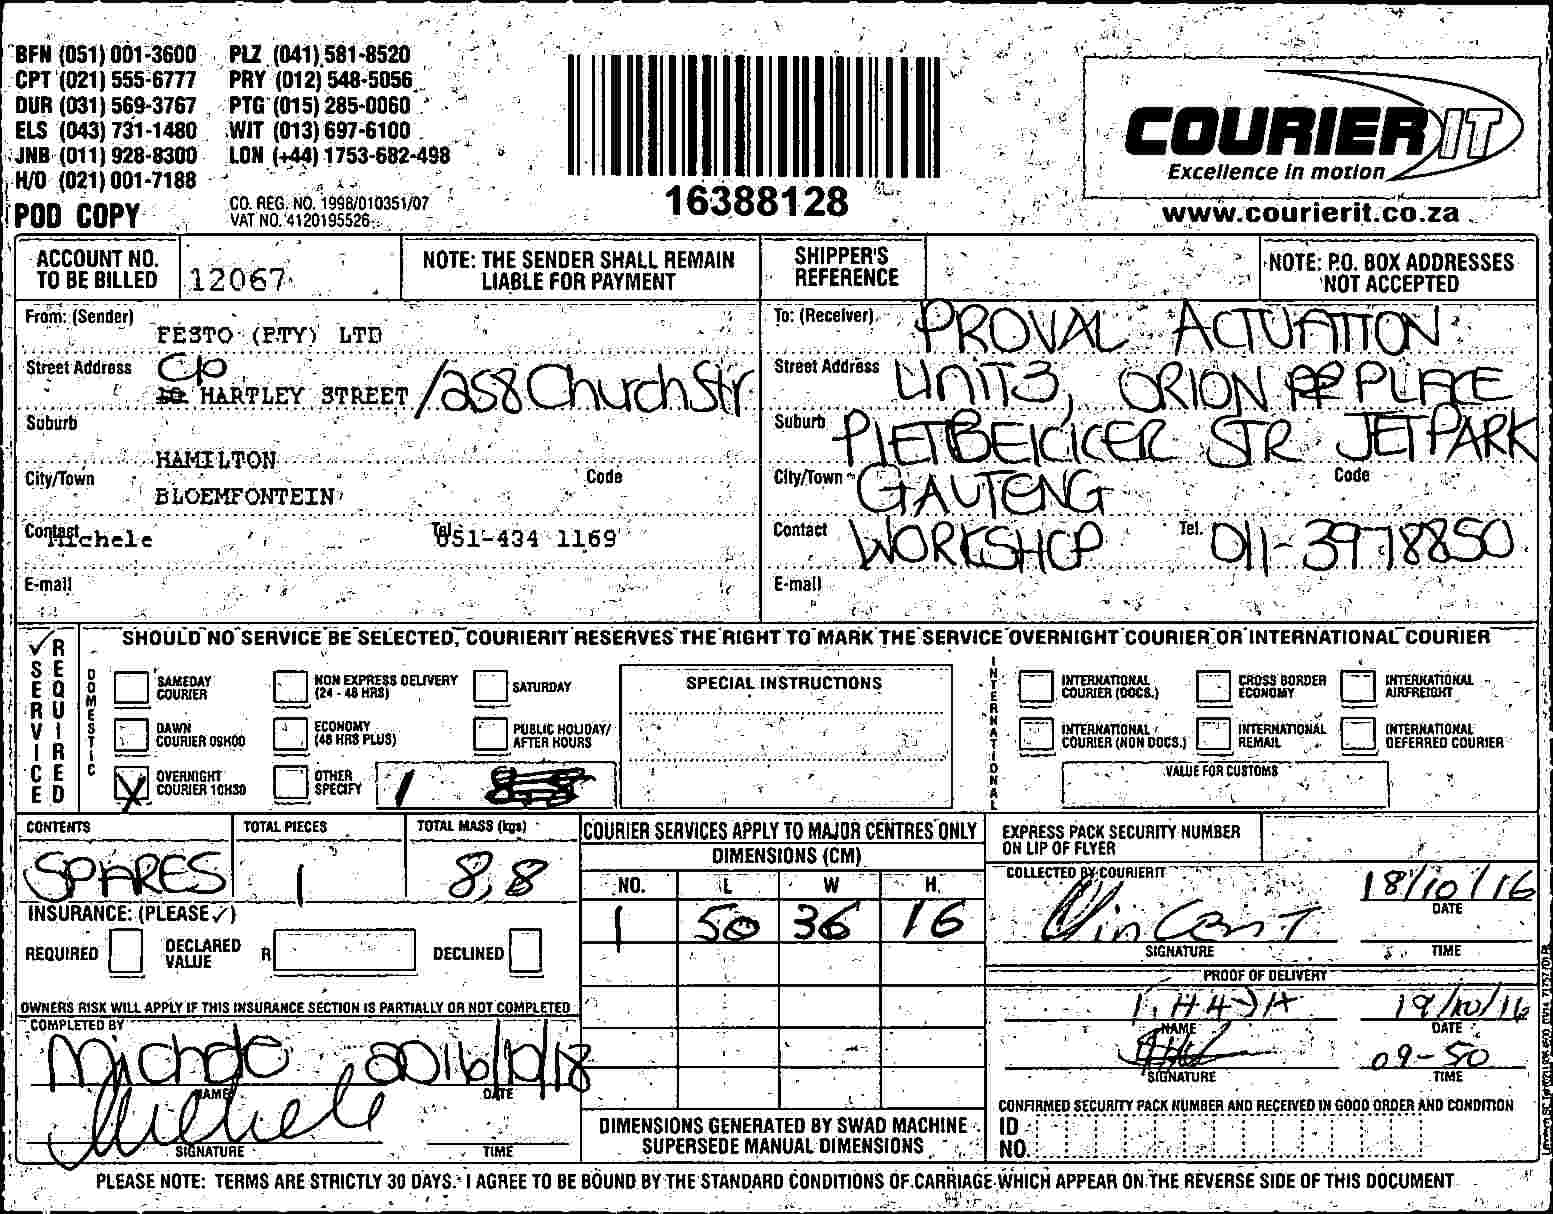 BFN (051) 001-3600 PLZ (041) 581-8520
CPT (021) 555-6777 PRY (012) 548-5056
DUR (031) 569-3767 PTG (015) 285-0060
ELS (043) 731-1480 WIT (013) 697-6100
JNB (011) 928-8300 LON (+44) 1753-682-498
H/O (021) 001-7188
POD COPY
CO. REG. NO. 1998/010351/07
VAT NO. 4120195526
16388128
COURIER IT
Excellence in motion
www.courierit.co.za
ACCOUNT NO. TO BE BILLED 12067
NOTE: THE SENDER SHALL REMAIN LIABLE FOR PAYMENT
SHIPPER'S REFERENCE
NOTE: P.O. BOX ADDRESSES NOT ACCEPTED
From: (Sender) FESTO (PTY) LTD
Street Address C/o HARTLEY STREET /258 Church Str
Suburb HAMILTON
City/Town BLOEMFONTEIN Code
Contact Michele Tel. 051-434 1169
E-mail
To: (Receiver) PROVAL ACTUATION
Street Address UNIT 3, ORION PLACE
Suburb PIETBEICICER STR JETPARK
City/Town GAUTENG Code
Contact WORKSHOP Tel. 011-3978850
E-mail
SERVICE REQUIRED
SHOULD NO SERVICE BE SELECTED, COURIERIT RESERVES THE RIGHT TO MARK THE SERVICE OVERNIGHT COURIER OR INTERNATIONAL COURIER
DOMESTIC
SAMEDAY COURIER
NON EXPRESS DELIVERY (24 - 48 HRS)
SATURDAY
DAWN COURIER 09H00
ECONOMY (48 HRS PLUS)
PUBLIC HOLIDAY/ AFTER HOURS
X OVERNIGHT COURIER 10H30
OTHER SPECIFY 1
SPECIAL INSTRUCTIONS
INTERNATIONAL
INTERNATIONAL COURIER (DOCS.)
CROSS BORDER ECONOMY
INTERNATIONAL AIRFREIGHT
INTERNATIONAL COURIER (NON DOCS.)
INTERNATIONAL REMAIL
INTERNATIONAL DEFERRED COURIER
VALUE FOR CUSTOMS
CONTENTS SPARES
TOTAL PIECES 1
TOTAL MASS (kgs) 8,8
INSURANCE: (PLEASE ✓)
REQUIRED DECLARED VALUE R DECLINED
OWNERS RISK WILL APPLY IF THIS INSURANCE SECTION IS PARTIALLY OR NOT COMPLETED
COMPLETED BY
Michele 2016/10/18
NAME DATE
Michele
SIGNATURE TIME
COURIER SERVICES APPLY TO MAJOR CENTRES ONLY
DIMENSIONS (CM)
NO. L W H
1 50 36 16
DIMENSIONS GENERATED BY SWAD MACHINE SUPERSEDE MANUAL DIMENSIONS
EXPRESS PACK SECURITY NUMBER ON LIP OF FLYER
COLLECTED BY COURIERIT
Vincent 18/10/16
SIGNATURE DATE
TIME
PROOF OF DELIVERY
19/10/16
NAME DATE
09-50
SIGNATURE TIME
CONFIRMED SECURITY PACK NUMBER AND RECEIVED IN GOOD ORDER AND CONDITION
ID NO.
PLEASE NOTE: TERMS ARE STRICTLY 30 DAYS. I AGREE TO BE BOUND BY THE STANDARD CONDITIONS OF CARRIAGE WHICH APPEAR ON THE REVERSE SIDE OF THIS DOCUMENT